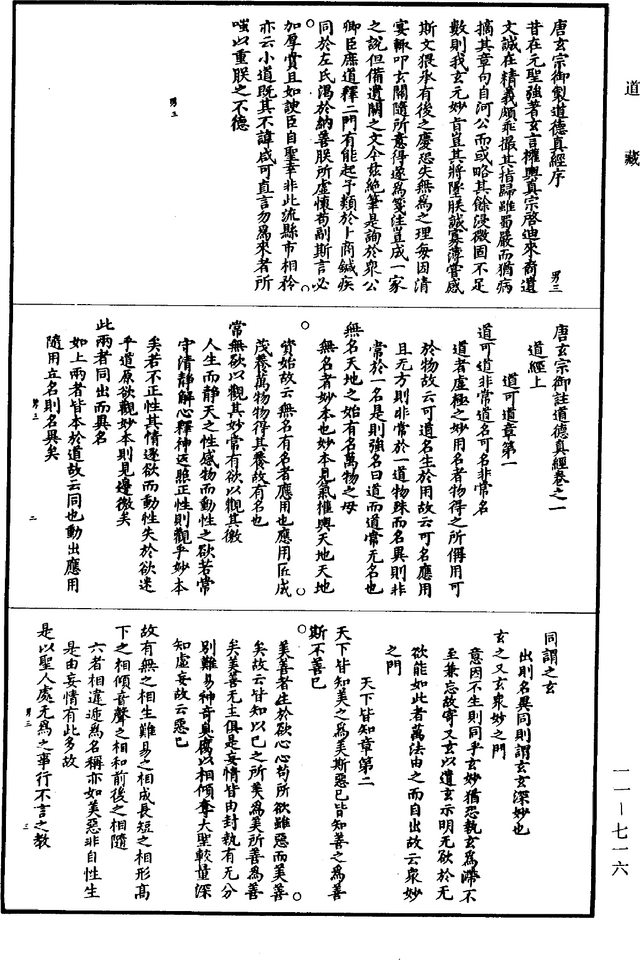 道藏
唐玄宗御製道德真經序
男三
昔在元聖強著玄言權輿真宗啓迪來裔遺
文誠在精義頗乖撮其指歸雖蜀嚴而猶病
摘其章句自河公而或略其餘浸微固不足
數則我玄元妙旨豈其將墜朕誠寡薄嘗感
斯文猥承有後之慶恐失無爲之理每因清
宴輒叩玄關隨所意得遂爲箋注豈成一家
之說但備遺闕之文今茲絕筆是詢於衆公
卿臣庶道釋二門有能起予類於卜商鍼疾
同於左氏渴於納善朕所虛懷苟副斯言必
加厚賞且如諛臣自聖幸非此流縣市相矜
亦云小道既其不諱咸可直言勿爲來者所
嗤以重朕之不德
男三
唐玄宗御註道德真經卷之一
道經上
道可道章第一
道可道非常道名可名非常名
道者虛極之妙用名者物得之所稱用可
於物故云可道名生於用故云可名應用
且无方則非常於一道物殊而名異則非
常於一名是則強名曰道而道常无名也
無名天地之始有名萬物之母
無名者妙本也妙本見氣權輿天地天地
資始故云無名有名者應用也應用匠成
茂養萬物物得其養故有名也
常無欲以觀其妙常有欲以觀其徼
人生而靜天之性感物而動性之欲若常
守清靜解心釋神返照正性則觀乎妙本
矣若不正性其情逐欲而動性失於欲迷
乎道原欲觀妙本則見邊徼矣
此兩者同出而異名
如上兩者皆本於道故云同也動出應用
隨用立名則名異矣
男三
二
同謂之玄
出則名異同則謂玄玄深妙也
玄之又玄衆妙之門
意因不生則同乎玄妙猶恐執玄爲滯不
至兼忘故寄又玄以遣玄示明无欲於无
欲能如此者萬法由之而自出故云衆妙
之門
天下皆知章第二
天下皆知美之爲美斯惡已皆知善之爲善
斯不善已
美善者生於欲心心苟所欲雖惡而美善
矣故云皆知以己之所美爲美所善爲善
矣美善无主俱是妄情皆由封執有无分
別難易神奇臭腐以相傾奪大聖較量深
知虛妄故云惡已
故有無之相生難易之相成長短之相形高
下之相傾音聲之相和前後之相隨
六者相違遞爲名稱亦如美惡非自性生
是由妄情有此多故
是以聖人處无爲之事行不言之教
男三
三
一一—七一六